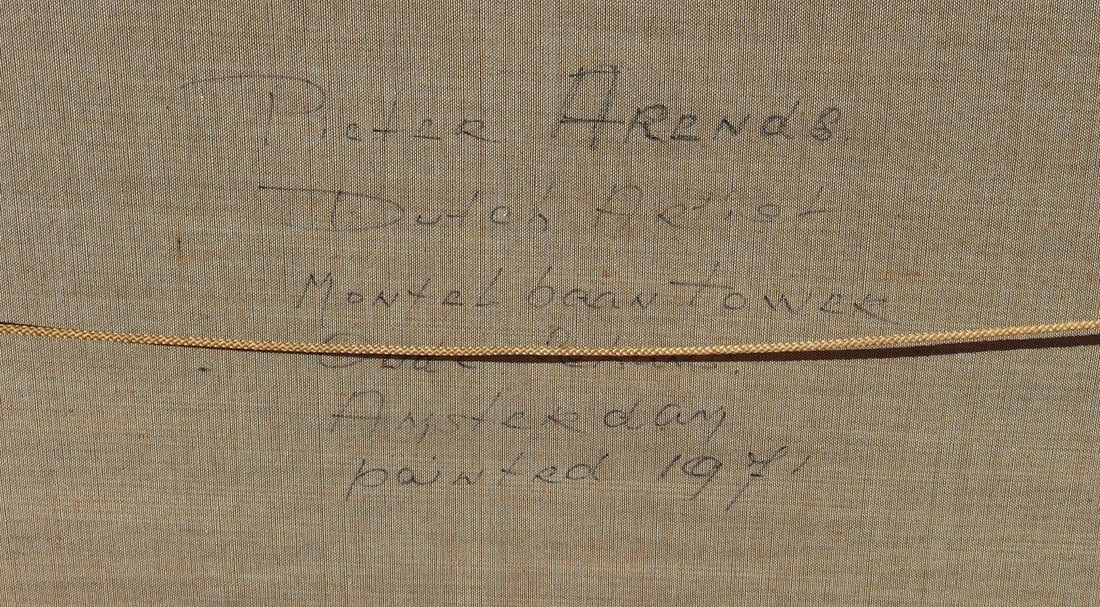 Pieter ARENdS.
Dutch Artist
Montelbaan tower
Oude
Amsterdam
painted 1971